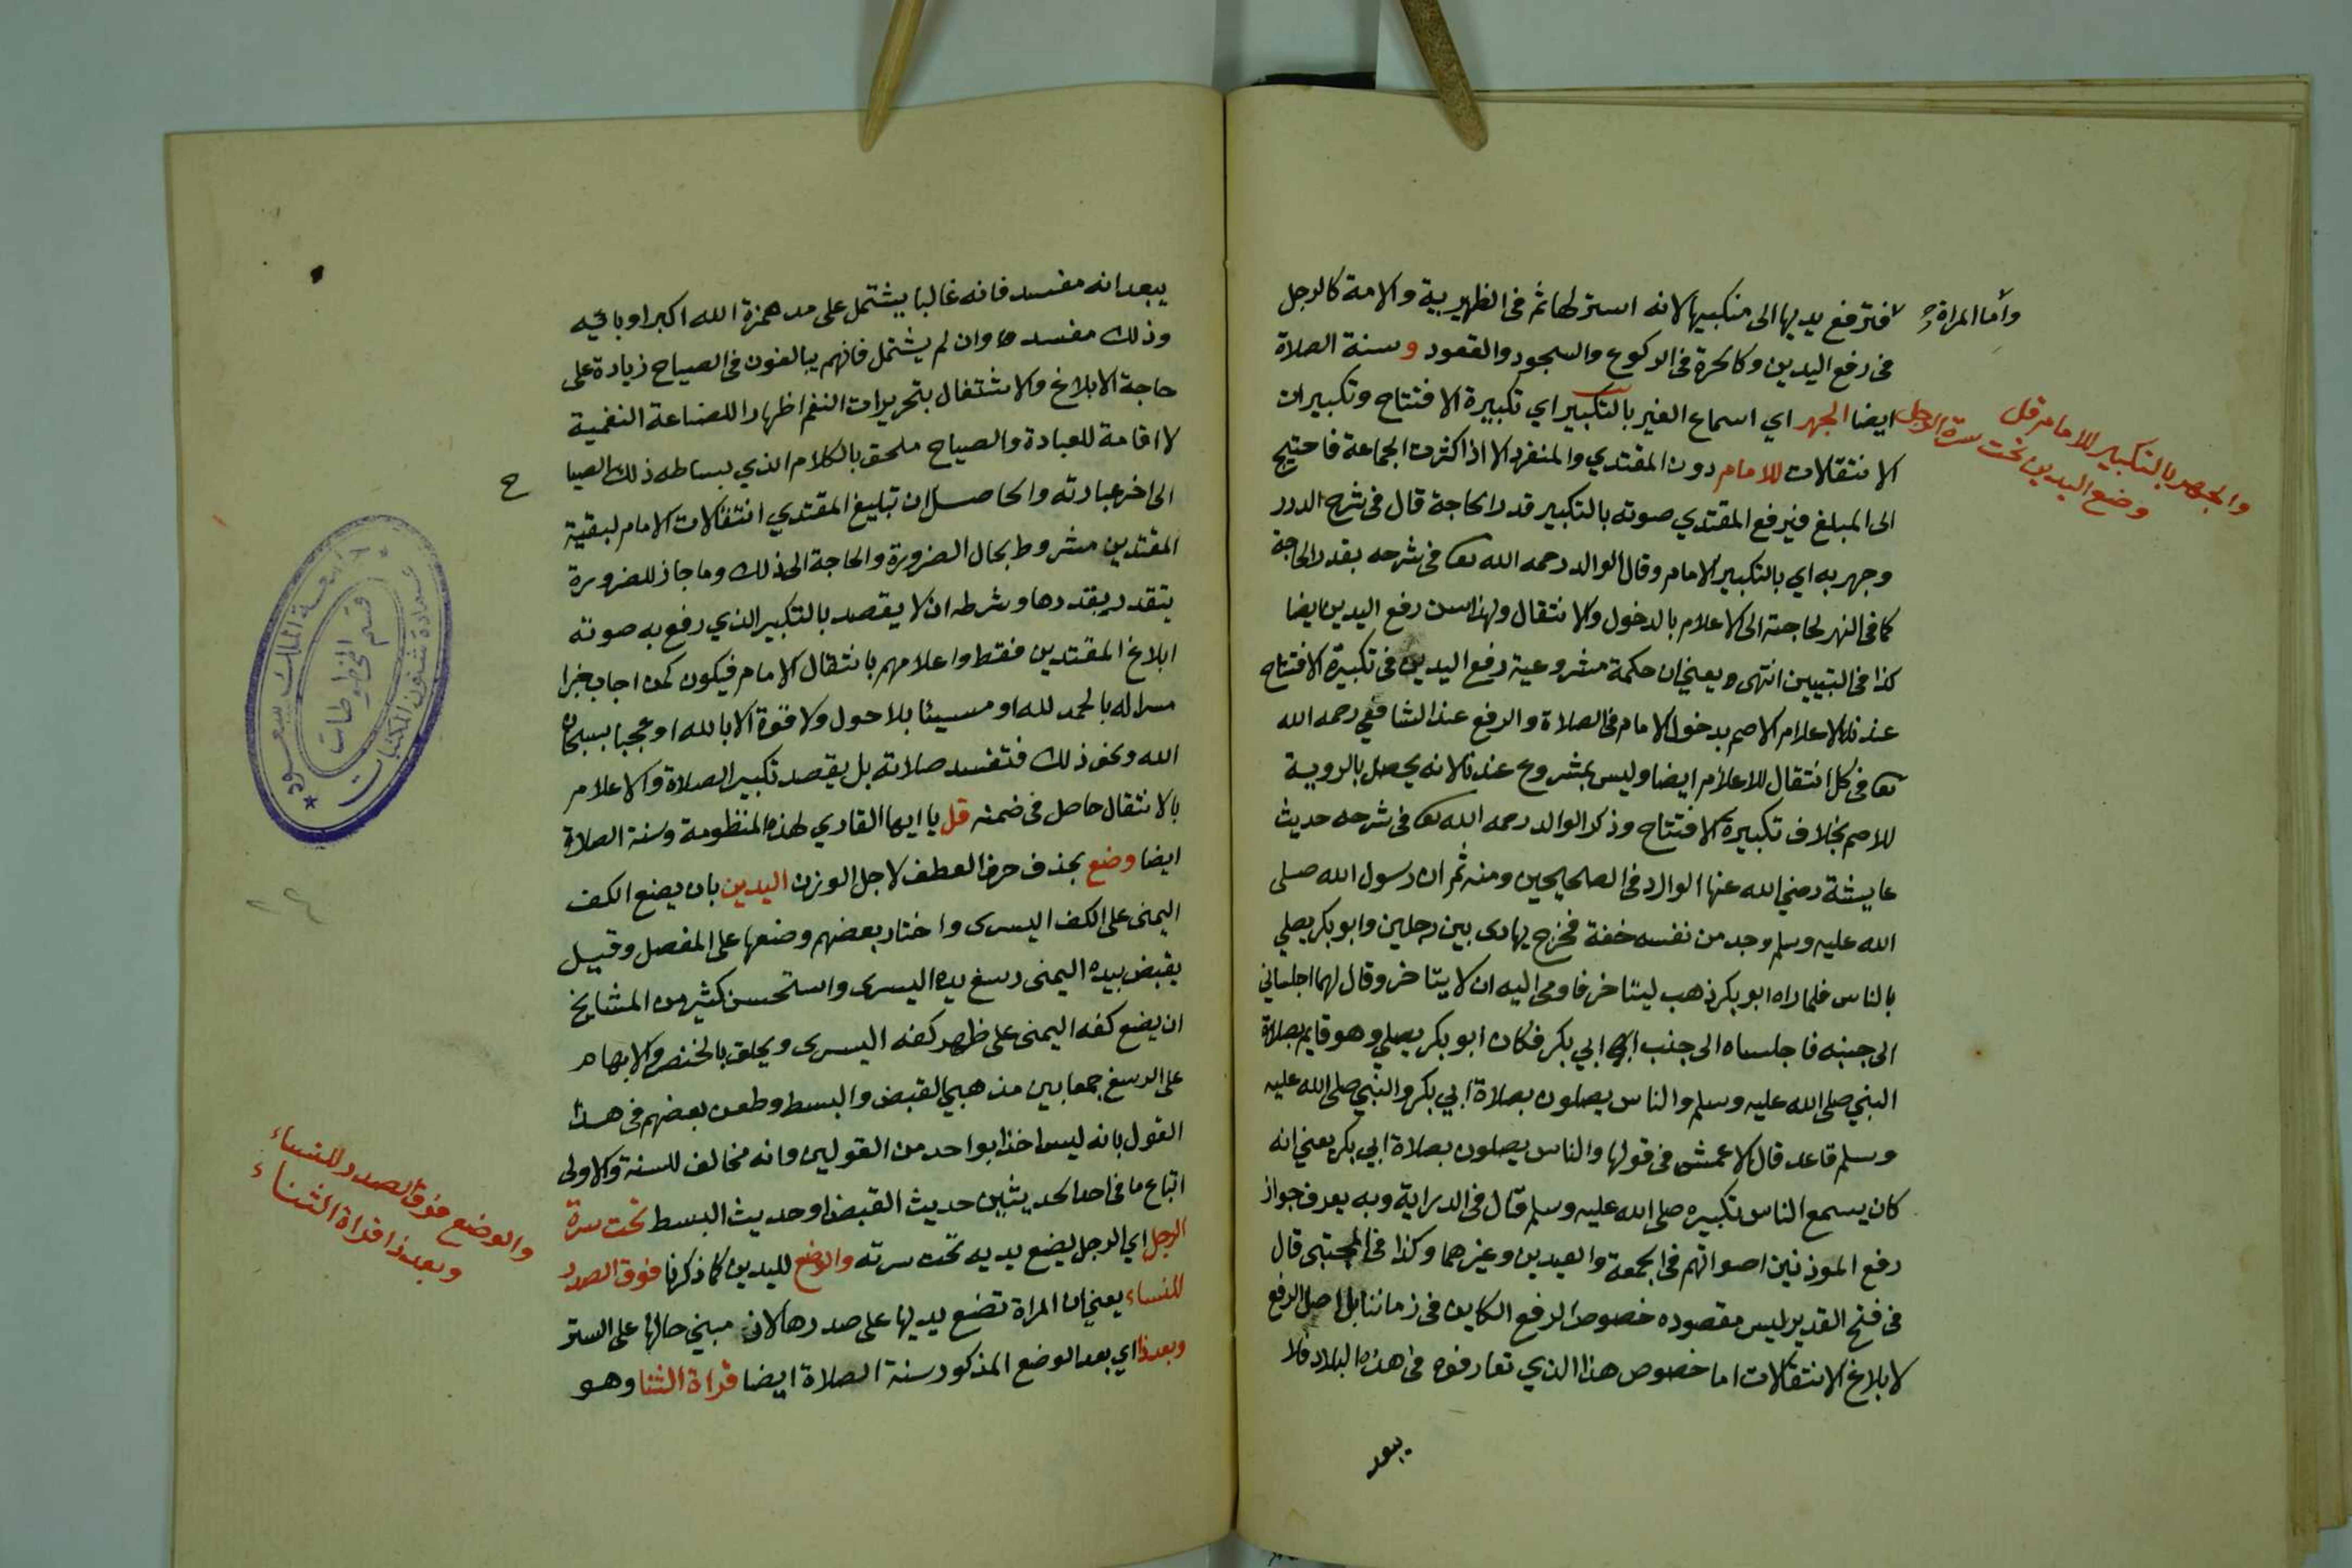 وأما المرأة
فترفع يديها الى منكبيها لانه استر لها ثم فى الظهيرية والامة كالرجل
فى رفع اليدين وكالحرة فى الركوع والسجود والقعود وسنة الصلاة
ايضا الجهر اي اسماع الغير بالتكبير اي تكبيرة الافتتاح وتكبيرات
الانتقالات للامام دون المقتدي والمنفرد الا اذا كثرت الجماعة فاحتيج
الى المبلغ فيرفع المقتدي صوته بالتكبير قدر الحاجة قال فى شرح الدرر
وجهر به اي بالتكبير الامام وقال الوالد رحمه الله تعا فى شرحه بقدر الحاجة
كما فى النهر لحاجته الى الاعلام بالدخول والانتقال ولهذا سن رفع اليدين ايضا
كذا فى التبيين انتهى ويعني ان حكمة مشروعية رفع اليدين فى تكبيرة الافتتاح
عندنا لاعلام الاصم بدخول الامام فى الصلاة والرفع عند الشافعي رحمه الله
تعا فى كل انتقال للاعلام ايضا وليس بمشروع عندنا لانه يحصل بالروية
للاصم بخلاف تكبيرة الافتتاح وذكر الوالد رحمه الله تعا فى شرحه حديث
عايشة رضي الله عنها الوارد فى الصحيحين ومنه ثم ان رسول الله صلى
الله عليه وسلم وجد من نفسه خفة فخرج يهادى بين رجلين وابو بكر يصلي
بالناس فلما راه ابو بكر ذهب ليتاخر فاومى اليه ان لا يتاخر وقال لهما اجلساني
الى جنبه فاجلساه الى جنب ابي بكر فكان ابو بكر يصلي وهو قايم بصلاة
النبي صلى الله عليه وسلم والناس يصلون بصلاة ابي بكر والنبي صلى الله عليه
وسلم قاعد قال الاعمش فى قولها والناس يصلون بصلاة ابي بكر يعني انه
كان يسمع الناس تكبيره صلى الله عليه وسلم قال فى الدراية وبه يعرف جواز
رفع الموذنين اصواتهم فى الجمعة والعيدين وغيرهما وكذا فى المجتبى قال
فى فتح القدير ليس مقصوده خصوص الرفع الكاين فى زماننا بل اصل الرفع
لابلاغ الانتقالات اما خصوص هذا الذي تعارفوه فى هذه البلاد فلا
يبعد
والجهر بالتكبير للامام قل
وضع اليدين تحت سرة الرجل
يبعد انه مفسد فانه غالبا يشتمل على مد همزة الله اكبر او بائيه
وذلك مفسد وان لم يشتمل فانهم يبالغون فى الصياح زيادة على
حاجة الابلاغ والاشتغال بتحريرات النغم اظهارا للصناعة النغمية
لا اقامة للعبادة والصياح ملحق بالكلام الذي بساطه ذلك الصيا
ح
الى اخر عبارته والحاصل ان تبليغ المقتدي انتقالات الامام لبقية
المقتدين مشروط بحال الضرورة والحاجة الى ذلك وما جاز للضرورة
يتقدر بقدرها وشرطه ان لا يقصد بالتكبير الذي رفع به صوته
ابلاغ المقتدين فقط واعلامهم بانتقال الامام فيكون كمن اجاب خبرا
سرا له بالحمد لله او مسيئا بلا حول ولا قوة الا بالله او عجبا بسبحان
الله ونحو ذلك فتفسد صلاته بل يقصد تكبير الصلاة والاعلام
بالانتقال حاصل فى ضمنه قل يا ايها القاري لهذه المنظومة وسنة الصلاة
ايضا وضع بحذف حرف العطف لاجل الوزن اليدين بان يضع الكف
اليمنى على الكف اليسرى واختار بعضهم وضعها على المفصل وقيل
يقبض بيده اليمنى رسغ يده اليسرى واستحسن كثير من المشايخ
ان يضع كفه اليمنى على ظهر كفه اليسرى ويحلق بالخنصر والابهام
على الرسغ جمعا بين مذهبي القبض والبسط وطعن بعضهم فى هذا
القول بانه ليس اخذا بواحد من القولين وانه مخالف للسنة والاولى
اتباع ما فى احد الحديثين حديث القبض او حديث البسط تحت سرة
الرجل اي الرجل يضع يديه تحت سرته والوضع لليدين كما ذكرنا فوق الصدر
للنساء يعني ان المراة تضع يديها على صدرها لان مبني حالها على الستر
وبعد ذا اي بعد الوضع المذكور سنة الصلاة ايضا قراة الثنا وهو
والوضع فوق الصدر للنساء
وبعد ذا قراة الثناء
جامعة الملك سعود
عمادة شئون المكتبات
قسم المخطوطات
٢٤